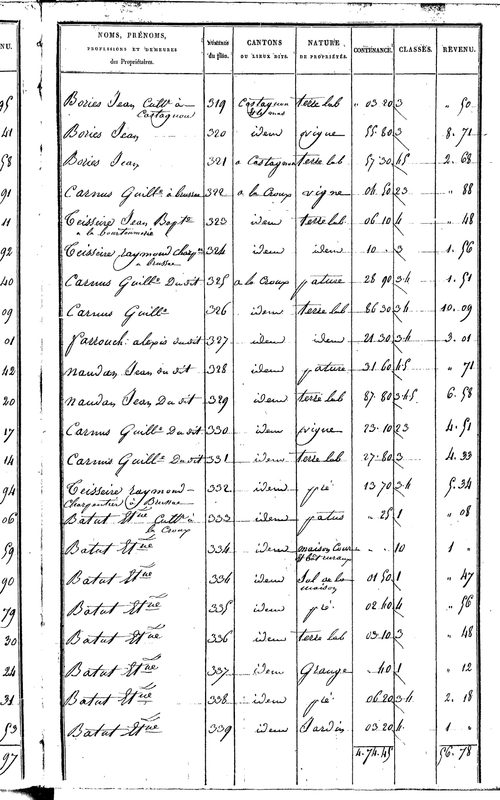 NU.
95
41
58
91
11
92
40
09
01
42
20
17
14
94
06
59
90
79
30
24
31
53
97
NOMS, PRÉNOMS, PROFESSIONS ET DEMEURES des Propriétaires. NUMÉROS du plan. CANTONS OU LIEUX DITS. NATURE DE PROPRIÉTÉS. CONTENANCE. CLASSES. REVENU.
Bories Jean Cultr à Castagnou 319 Castagnou terre lab " 03 20 3 " 50
Bories Jean 320 idem vigne 55 80 3 8. 71
Bories Jean 321 a Castagnou terre lab 57 30 45 2. 68
Carnus Guille à brussac 322 a la Croux vigne 04 50 23 " 88
Teisseire Jean Bapte 323 idem terre lab 06 10 4 " 48
Teisseire raymond charpr à brussac 324 idem idem 10 . 3 1. 56
Carnus Guille Dudit 325 a la Croux pature 28 90 3.4 1. 51
Carnus Guille 326 idem terre lab 86 30 3.4 10. 09
farrouch alexis dudit 327 idem idem 21 30 3.4 3. 01
naudan Jean du dit 328 idem pature 31. 60 4.5 " 71
naudan Jean Du dit 329 idem terre lab 87. 80 3.4.5 6. 58
Carnus Guille Du dit 330 idem vigne 23. 10 23 4. 51
Carnus Guille Du dit 331 idem terre lab 27 80 3 4. 33
Teisseire raymond charpentier à Brussac 332 idem pré 13 70 3.4 5. 34
Batut Etne Cultr à la Croux 333 idem patus " . 25 1 " 08
Batut Etne 334 idem maison Cour " . " 10 1 "
Batut Etne 334 idem Sol de la maison 01 50 1 " 47
Batut Etne 335 idem pré 02 40 4 " 56
Batut Etne 336 idem terre lab 03 10 3 " 48
Batut Etne 337 idem Grange . 40 1 " 12
Batut Etne 338 idem pré 06 20 3.4 2. 18
Batut Etne 339 idem Jardin 03 20 4. 1 "
4. 74. 45 56. 78